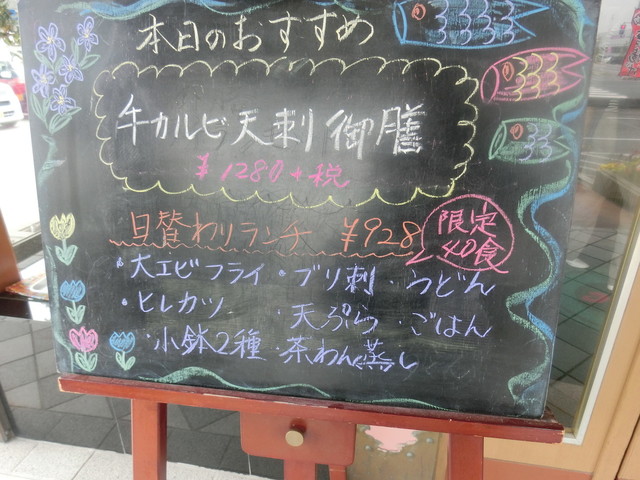 本日のおすすめ
牛カルビ天刺御膳
¥1280+税
日替わりランチ ¥928
限定
40食
・大エビフライ ・ブリ刺 ・うどん
・ヒレカツ ・天ぷら ・ごはん
・小鉢2種 ・茶わん蒸し